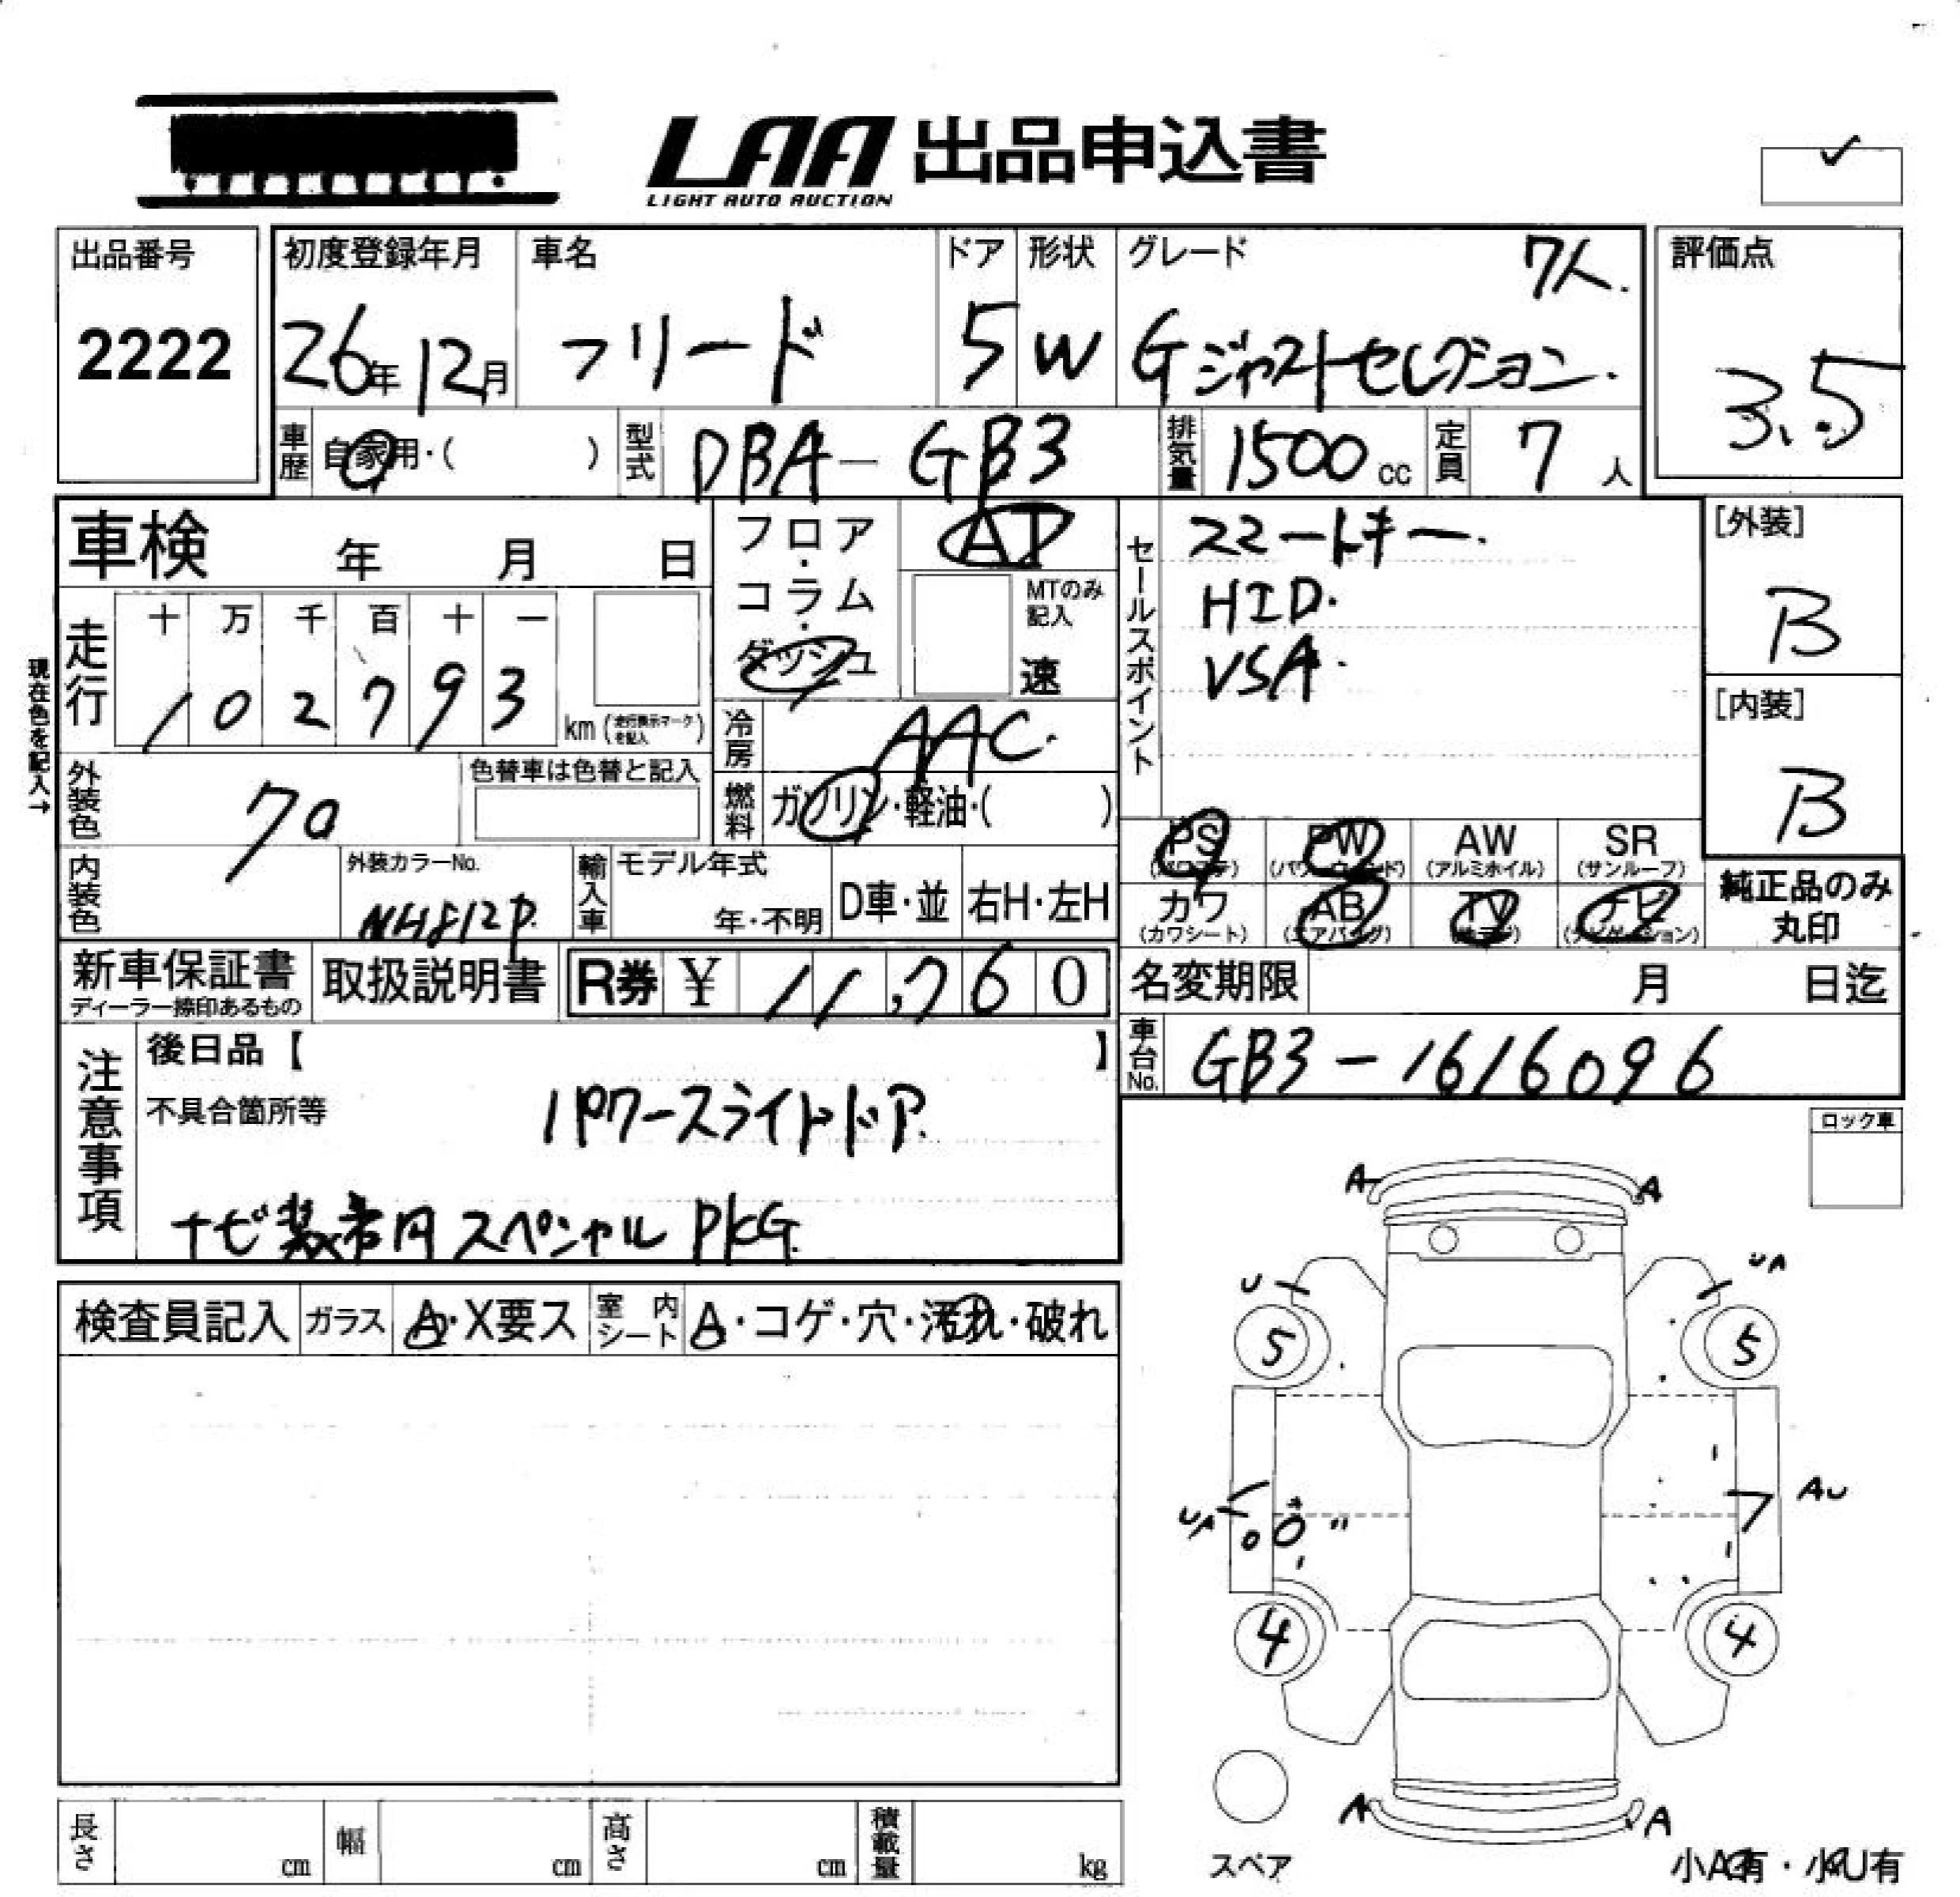 LAA 出品申込書
LIGHT AUTO AUCTION
出品番号
2222
初度登録年月
26年12月
車名
フリード
ドア
5
形状
W
グレード
7人.
Gジャストセレクション.
評価点
3.5
車歴
自家用・( )
型式
DBA-GB3
排気量
1500cc
定員
7人
車検 年 月 日
フロア・コラム・ダッシュ
AT
MTのみ記入
速
セールスポイント
スマートキー.
HID.
VSA.
[外装]
B
[内装]
B
現在色を記入→
走行
十 万 千 百 十 一
102793
km(走行表示マークを記入)
冷房
AAC.
燃料
ガソリン・軽油・( )
外装色
色替車は色替と記入
内装色
外装カラーNo.
NH812P.
輸入車
モデル年式
年・不明
D車・並
右H・左H
PS (パワステ)
PW (パワーウィンド)
AW (アルミホイル)
SR (サンルーフ)
カワ (カワシート)
AB (エアバッグ)
TV
ナビ (ナビゲーション)
純正品のみ丸印
新車保証書
ディーラー捺印あるもの
取扱説明書
R券 ¥ 11,760
名変期限 月 日迄
車台No.
GB3-1616096
注意事項
後日品【 】
不具合箇所等
1パワースライドドア.
ナビ装着用スペシャルPKG.
ロック車
検査員記入
ガラス
A・X要ス
室内シート
A・コゲ・穴・汚れ・破れ
A A
U UA
5 5
UA AU
4 4
A A
スペア
長さ cm
幅 cm
高さ cm
積載量 kg
小A有・小U有